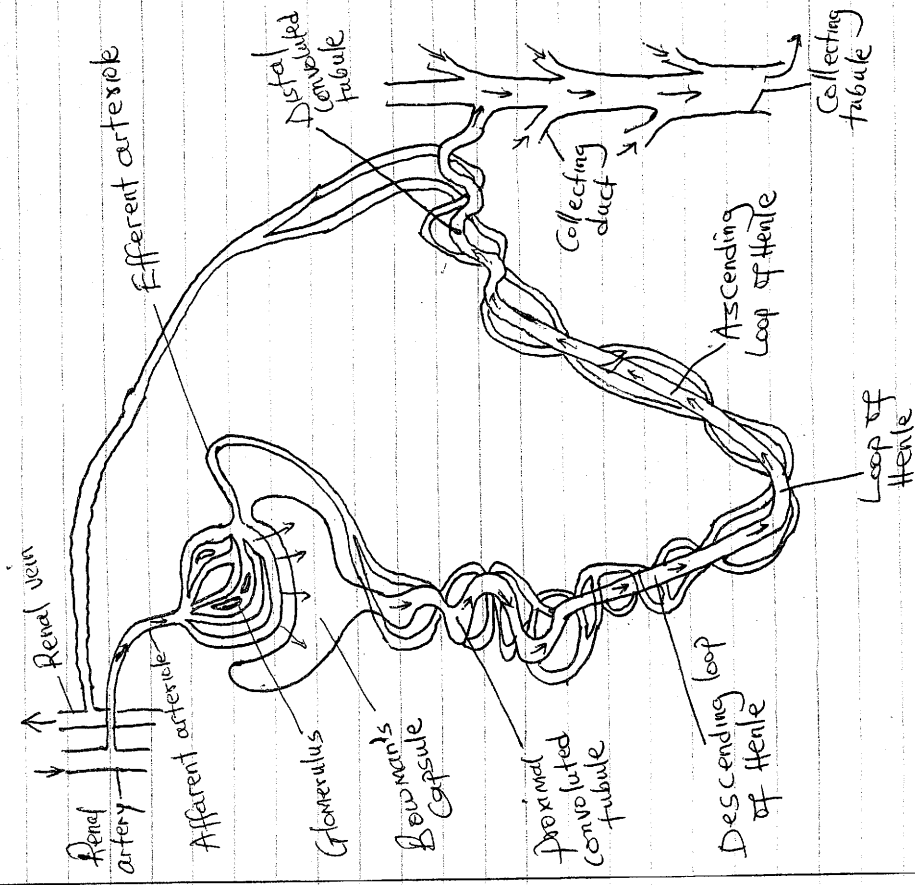 Renal vein
Renal
artery
Afferent arteriole
Efferent arteriole
Glomerulus
Bowman's
Capsule
Proximal
convoluted
tubule
Descending loop
of Henle
Loop of
Henle
Ascending
Loop of Henle
Distal
convoluted
tubule
Collecting
duct
Collecting
tubule